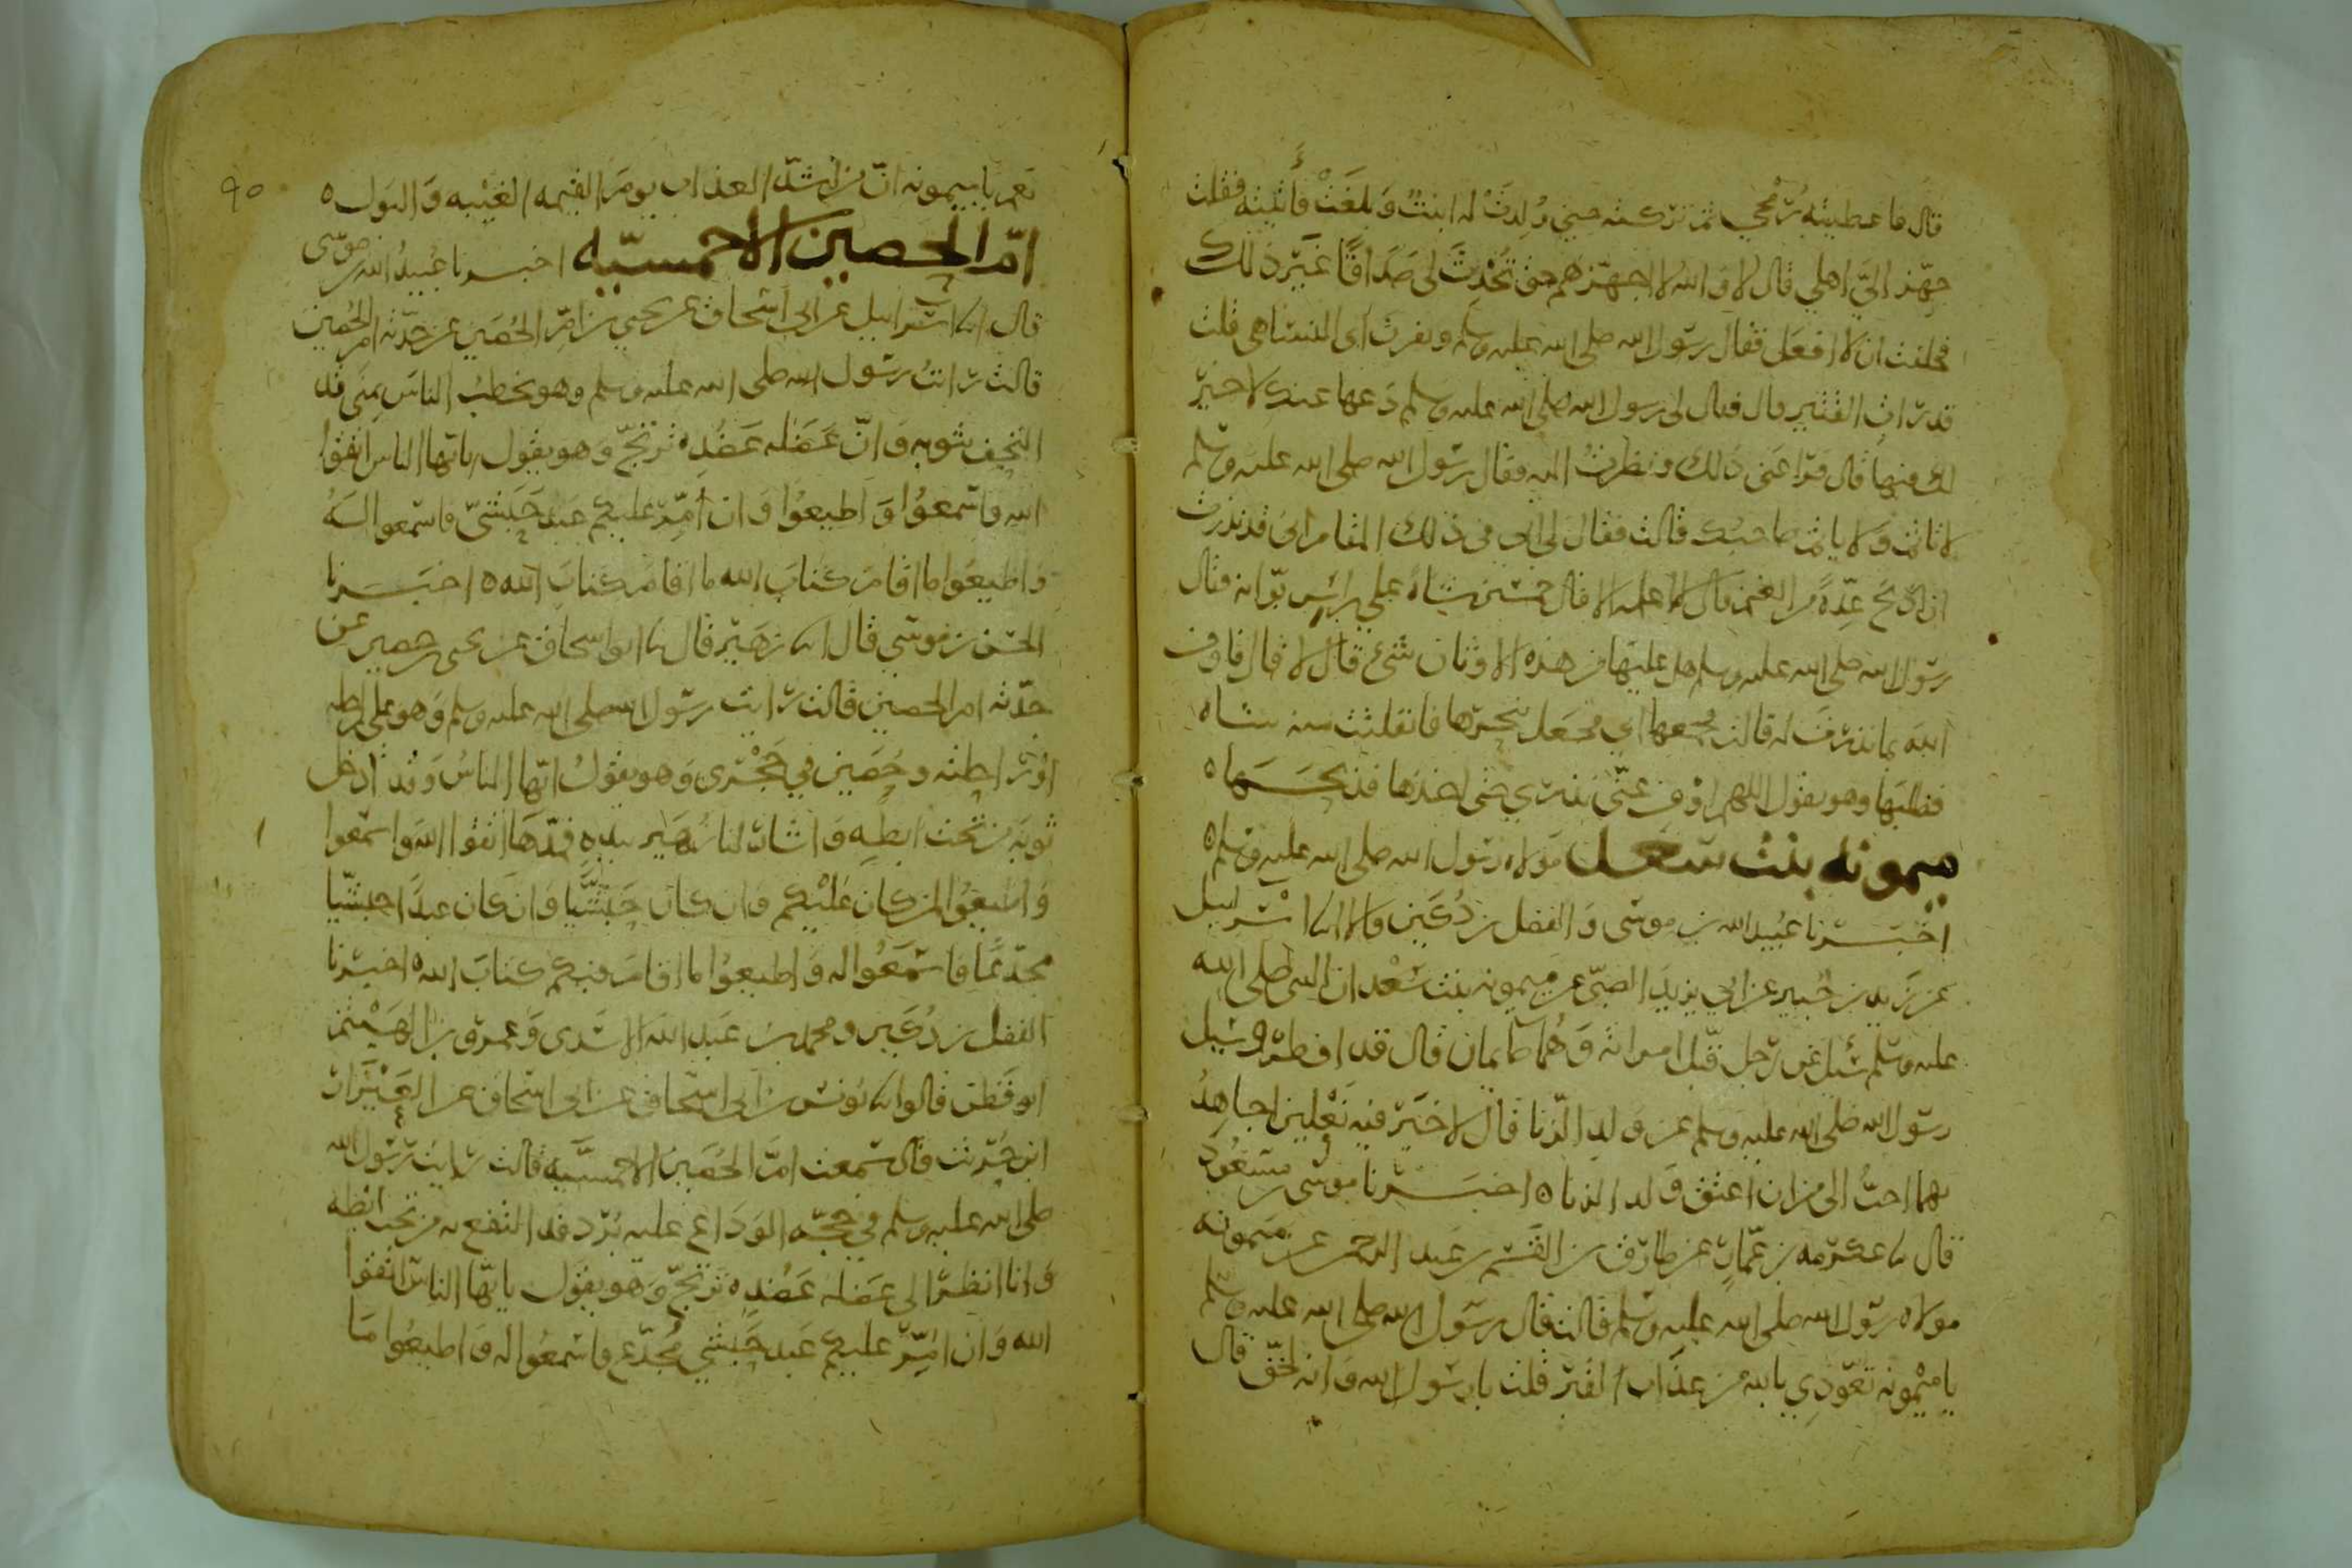 قال فاعطيته رمحي ثم تركته حتى ولدت له ابنة وبلغت فأتيته فقلت
جهز اليّ اهلي قال لا والله لا اجهزهم حتى تحدث لي صداقا غير ذلك
فحلفت ان لا افعل فقال رسول الله صلى الله عليه وسلم وبقرن اي النسا هي قلت
قد رات القتير قال فقال لي رسول الله صلى الله عليه وسلم دعها عنك لا خير
لك فيها قال فراعني ذلك ونظرت اليه فقال رسول الله صلى الله عليه وسلم
لا تاثم ولا ياثم صاحبك قالت فقال لي ابي في ذلك المقام اني قد نذرت
ان اذبح عدة من الغنم قال لا اعلمه الا قال خمسين شاة على راس بوانه فقال
رسول الله صلى الله عليه وسلم هل عليها من هذه الاوثان شيء قال لا قال فاوف
الله بما نذرت له قالت فجمعها ابي فجعل يذبحها فانفلتت منه شاة
فطلبها وهو يقول اللهم اوف عني نذري حتى اخذها فذبحها ه
ميمونه بنت سعد مولاه رسول الله صلى الله عليه وسلم ه
اخبرنا عبيد الله بن موسى والفضل بن دكين قالا انا اسرائيل
عن زيد بن جبير عن ابي يزيد الضبي عن ميمونه بنت سعد ان النبي صلى الله
عليه وسلم سئل عن رجل قبل امراته وهما صايمان قال قد افطر وسئل
رسول الله صلى الله عليه وسلم عن ولد الزنا قال لا خير فيه نعلين اجاهد
بهما احب الي من ان اعتق ولد الزنا ه اخبرنا موسى بن مسعود
قال نا عكرمه بن عمار عن طارق بن القسم بن عبد الرحمن عن ميمونه
مولاه رسول الله صلى الله عليه وسلم قالت قال رسول الله صلى الله عليه وسلم
يا ميمونه تعوذي بالله من عذاب القبر قلت يا رسول الله وانه لحق قال
٩٠
نعم يا ميمونه ان من اشد العذاب يوم القيمه الغيبه والبول ه
امّ الحصين الاحمسيّه اخبرنا عبيد الله بن موسى
قال انا اسرائيل عن ابي اسحاق عن يحيى بن ام الحصين عن جدته ام الحصين
قالت رايت رسول الله صلى الله عليه وسلم وهو يخطب الناس بمنى قد
التحف بثوبه وان عضله عضده ترتج وهو يقول يايها الناس اتقوا
الله واسمعوا واطيعوا وان امّر عليكم عبد حبشيّ فاسمعوا له
واطيعوا ما اقام كتاب الله ما اقام كتاب الله ه اخبرنا
الحسن بن موسى قال نا زهير قال نا ابو اسحاق عن يحيى بن حصين عن
جدته ام الحصين قالت رايت رسول الله صلى الله عليه وسلم وهو على راحلته
وحصين في حجري وهو يقول ايها الناس وقد ادخل
ثوبه من تحت ابطه واشار لنا زهير بيده فمدها اتقوا الله واسمعوا
واطيعوا لمن كان عليكم وان كان حبشيّا وان كان عبدا حبشيّا
مجدّعا فاسمعوا له واطيعوا ما اقام فيكم كتاب الله ه اخبرنا
الفضل بن دكين ومحمد بن عبد الله الاسدي وعمرو بن الهيثم
ابو قطن قالوا نا يونس بن ابي اسحاق عن ابي اسحاق عن العيزار
ابن حريث قال سمعت امّ الحصين الاحمسيّه قالت رايت رسول الله
صلى الله عليه وسلم في حجّه الوداع عليه برد قد التفع به من تحت ابطه
وانا انظر الى عضله عضده ترتج وهو يقول يايها الناس اتقوا
الله وان امّر عليكم عبد حبشي مجدّع فاسمعوا له واطيعوا ما